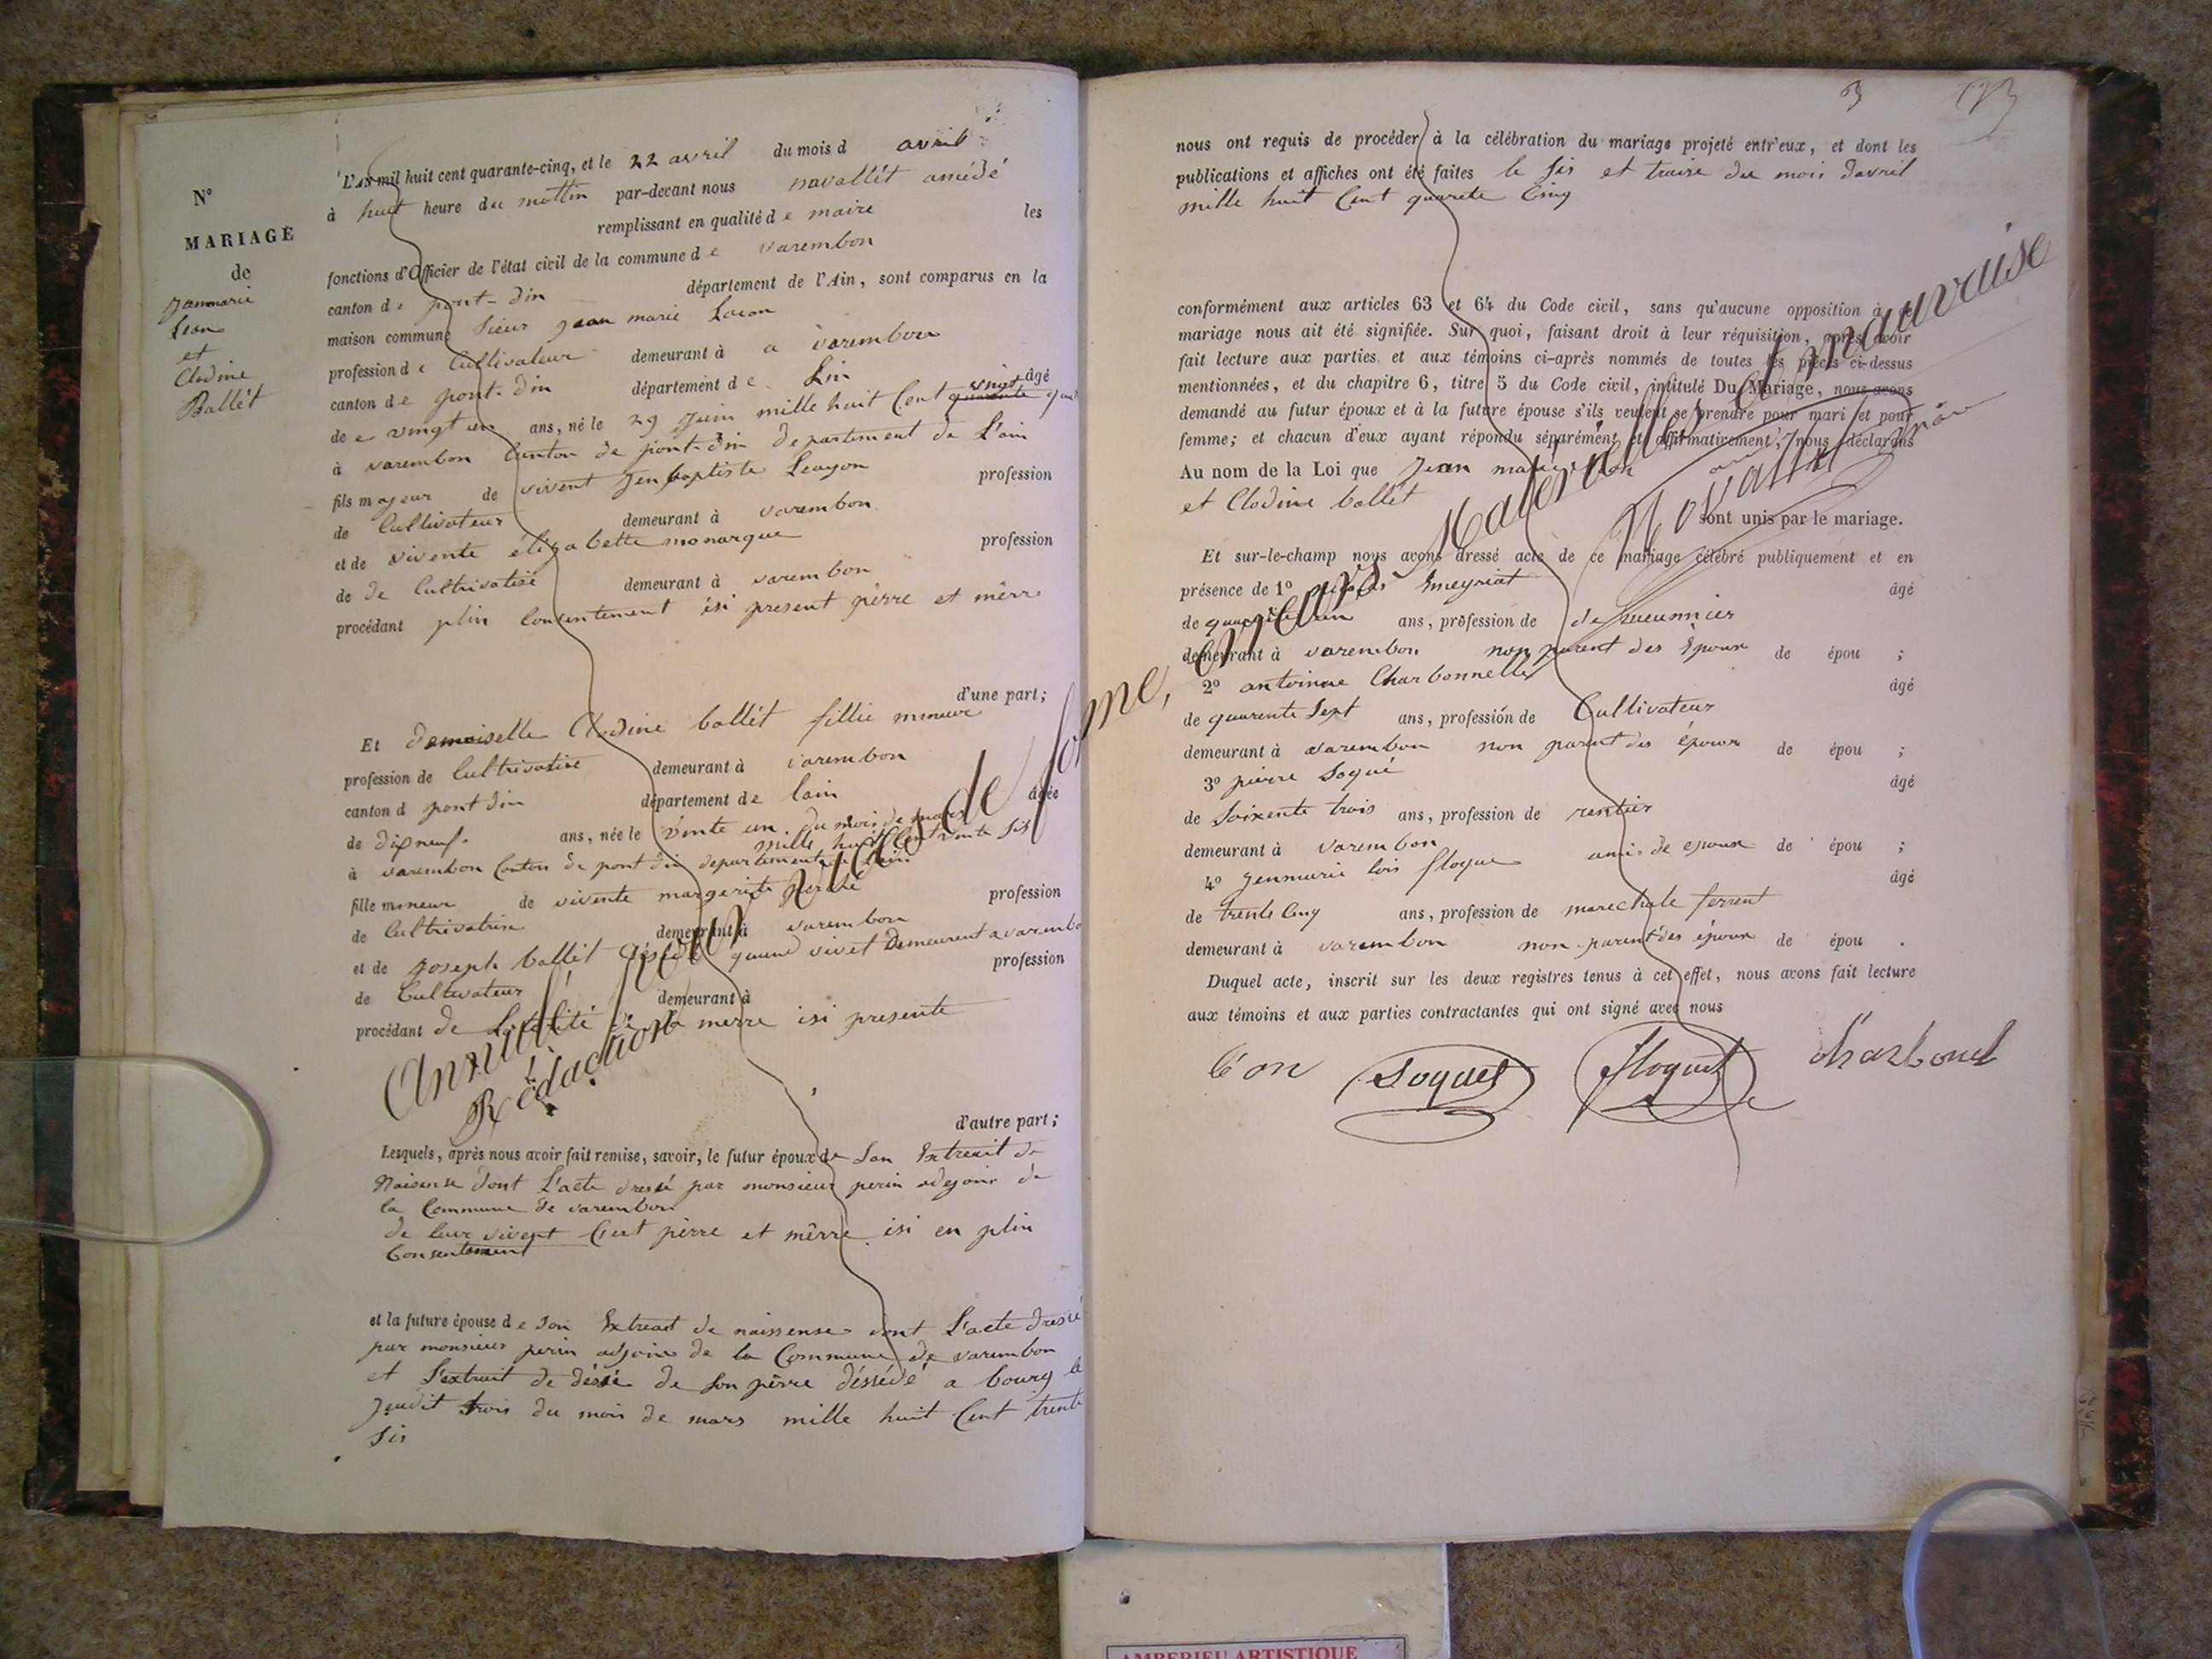 N°
MARIAGE
de
Janmarie
Léon
et
Clodine
Ballét
L'AN mil huit cent quarante-cinq, et le 22 avril du mois d avril
à huit heure du mattin par-devant nous navallét amédé
remplissant en qualité de maire les
fonctions d'Officier de l'état civil de la commune de varembon
canton de pont-din département de l'Ain, sont comparus en la
maison commune sieur jean marie
profession de Cultivateur demeurant à a varembon
canton de pont-din département de Lin âgé
de e vingt un ans, né le 29 juin mille huit Cent vingt
à varembon Canton de pont-din departement de L'ain
fils majeur de vivent jen baptiste profession
de Cultivateur demeurant à varembon
et de vivente élizabette monarque profession
de de Cultrivatisé demeurant à varembon
procédant plin Consentement isi present pèrre et mêrre
d'une part;
Et demoiselle Clodine ballét fillie mineur
profession de Cultrivatise demeurant à varembon
canton d pont din département de lain âgée
de dixneuf. ans, née le vente un du mois de mars
mille huit Cent vente sis
à varembon Canton de pont din departement
fille mineur de vivente margerite profession
de Cultrivatrise demeurant à varembon
et de joseph ballét quand vivet demeurent a varembon
profession
de Cultivateur demeurant à
procédant de merre isi presente
d'autre part;
Annullé pour vices de forme, erreurs Matérielles et mauvaise
Rédaction
Lesquels, après nous avoir fait remise, savoir, le futur époux de son Extreait de
Naisense dont L'acte dressé par monsieur perin adejoint de
la Commune de varembon
de leur vivent Cent pierre et mêrre isi en plin
Consentement
et la future épouse de son Extreait de naissense dont L'acte dressé
par monsieur perin adjoin de la Commune de varembon
et L'extrait de de son pèrre déssédé a bourg le
jeudit trois du mois de mars mille huit Cent trente
sis
3
nous ont requis de procéder à la célébration du mariage projeté entr'eux, et dont les
publications et affiches ont été faites le sis et traise du mois davril
mille huit Cent quarete Cinq
conformément aux articles 63 et 64 du Code civil, sans qu'aucune opposition à ce
mariage nous ait été signifiée. Sur quoi, faisant droit à leur réquisition, après avoir
fait lecture aux parties et aux témoins ci-après nommés de toutes les pièces ci-dessus
mentionnées, et du chapitre 6, titre 5 du Code civil, intitulé Du Mariage, nous avons
demandé au futur époux et à la future épouse s'ils veulent se prendre pour mari et pour
femme; et chacun d'eux ayant répondu séparément et affirmativement, nous déclarons
Au nom de la Loi que jean marie
et Clodine ballét
sont unis par le mariage.
Et sur-le-champ nous avons dressé acte de ce mariage célébré publiquement et en
présence de 1° Emeyriat âgé
de ans, profession de de meunier
demeurant à varembon non parent des Epoux de épou ;
2° antoinne Charbonnelle âgé
de quarente sept ans, profession de Cultivateur
demeurant à varembon non parent des époux de épou ;
3° pierre Soqué âgé
de Soixente trois ans, profession de rentier
demeurant à varembon amis de epoux de épou ;
4° jenmarie lois floque âgé
de trente Cinq ans, profession de marechale ferrent
demeurant à varembon non parent des époux de épou .
Duquel acte, inscrit sur les deux registres tenus à cet effet, nous avons fait lecture
aux témoins et aux parties contractantes qui ont signé avec nous
léon Soquet floquet charbonel
AMBERIEU ARTISTIQUE